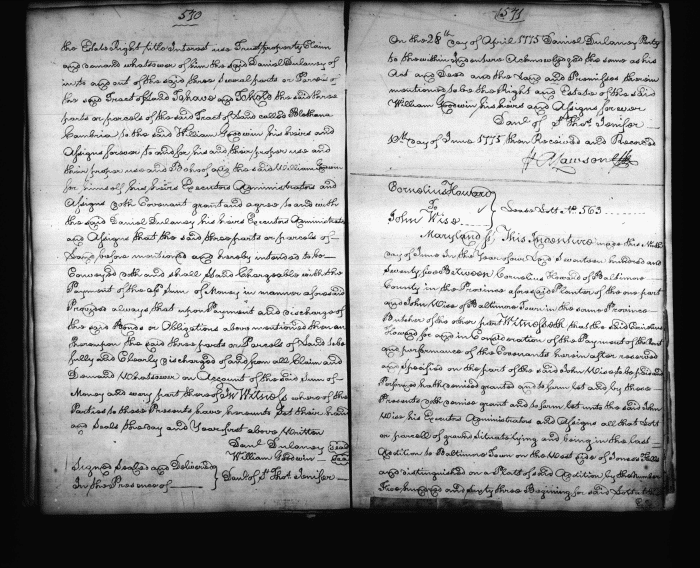 570
the Estate Right title Interest use Trust property Claim
and demand whatsoever of him the said Daniel Dulaney of
into and out of the said three several parts or Parcels of
the said Tract of Land To have and To hold the said three
parts or parcels of the said Tract of Land called
Cambria to the said William Goodwin his heirs and
Assigns forever to and for his and their proper use and
their proper use and Behoof and the said William Goodwin
for himself his heirs Executors Administrators and
Assigns doth Covenant grant and agree to and with
the said Daniel Dulaney his heirs Executors Administrators
and Assigns that the said three parts or parcels of
Land before mentioned and hereby intended to be
Conveyed doth and shall stand Chargeable with the
Payment of the afd. Sum of Money in manner aforesaid
Provided always that upon Payment and discharge of
the said Bonds or Obligations above mentioned then and
thereupon the said three parts or Parcels of Land to be
fully and Clearly discharged of and from all Claim and
Demand whatsoever on Account of the said Sum of
Money and every part thereof In Witness whereof the
Parties to these Presents have hereunto set their hands
and Seals the day and Year first above Written
Danl. Dulaney Seal
William Goodwin Seal
Signed Sealed and Delivered
In the Presence of Danl. of St. Thos. Jenifer
571
On the 28th day of April 1775 Daniel Dulaney Party
to the within Indenture Acknowledged the same as his
Act and Deed and the Land and Premises therein
mentioned to be the Right and Estate of the said
William Goodwin his heirs and Assigns forever
Danl. of St. Thos. Jenifer
10th day of June 1775 then Received and Recorded
A Lawson Clk
Cornelius Howard
To
John Wise
Lease Lott No. 563
Maryland ss. This Indenture made this Ninth
day of June In the Year of our Lord Seventeen hundred and
Seventy five Between Cornelius Howard of Baltimore
County in the Province aforesaid Planter of the one part
and John Wise of Baltimore Town in the same Province
Butcher of the other part Witnesseth that the said Cornelius
Howard for and in Consideration of the Payment of the Rent
and performance of the Covenants hereinafter reserved
and Specified on the part of the said John Wise to be paid and
Performed hath demised granted and to farm let and by these
Presents doth demise grant and to farm let unto the said John
Wise his Executors Administrators and Assigns all that Lott
or parcel of ground situate lying and being in the last
Addition to Baltimore Town on the West side of Jones Falls
and distinguished on a Platt of said Addition by the Number
Five hundred and sixty three Begining for said Lott at